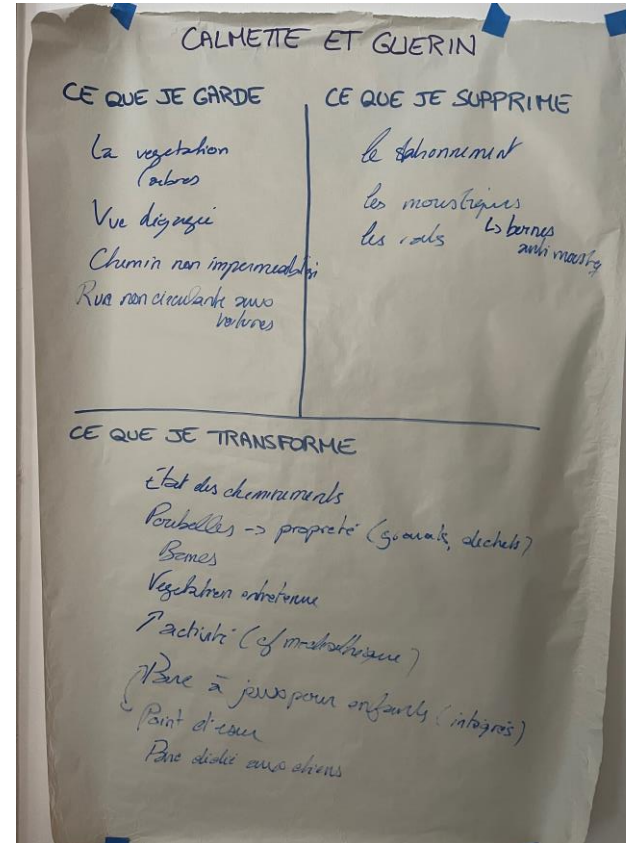 CALMETTE ET GUERIN
CE QUE JE GARDE
La vegetation
(arbres
Vue dégagée
Chemin non impermeabilisé
Rue non circulante aux
voitures
CE QUE JE SUPPRIME
le stationnement
les moustiques
↳ bornes
anti moustiq
les rats
CE QUE JE TRANSFORME
État des cheminements
Poubelles -> propreté (goelands, dechets)
Bancs
Vegetation entretenue
↑ activité (cf médiathèque)
Parc à jeux pour enfants (intégrés)
Point d'eau
Parc dédié aux chiens